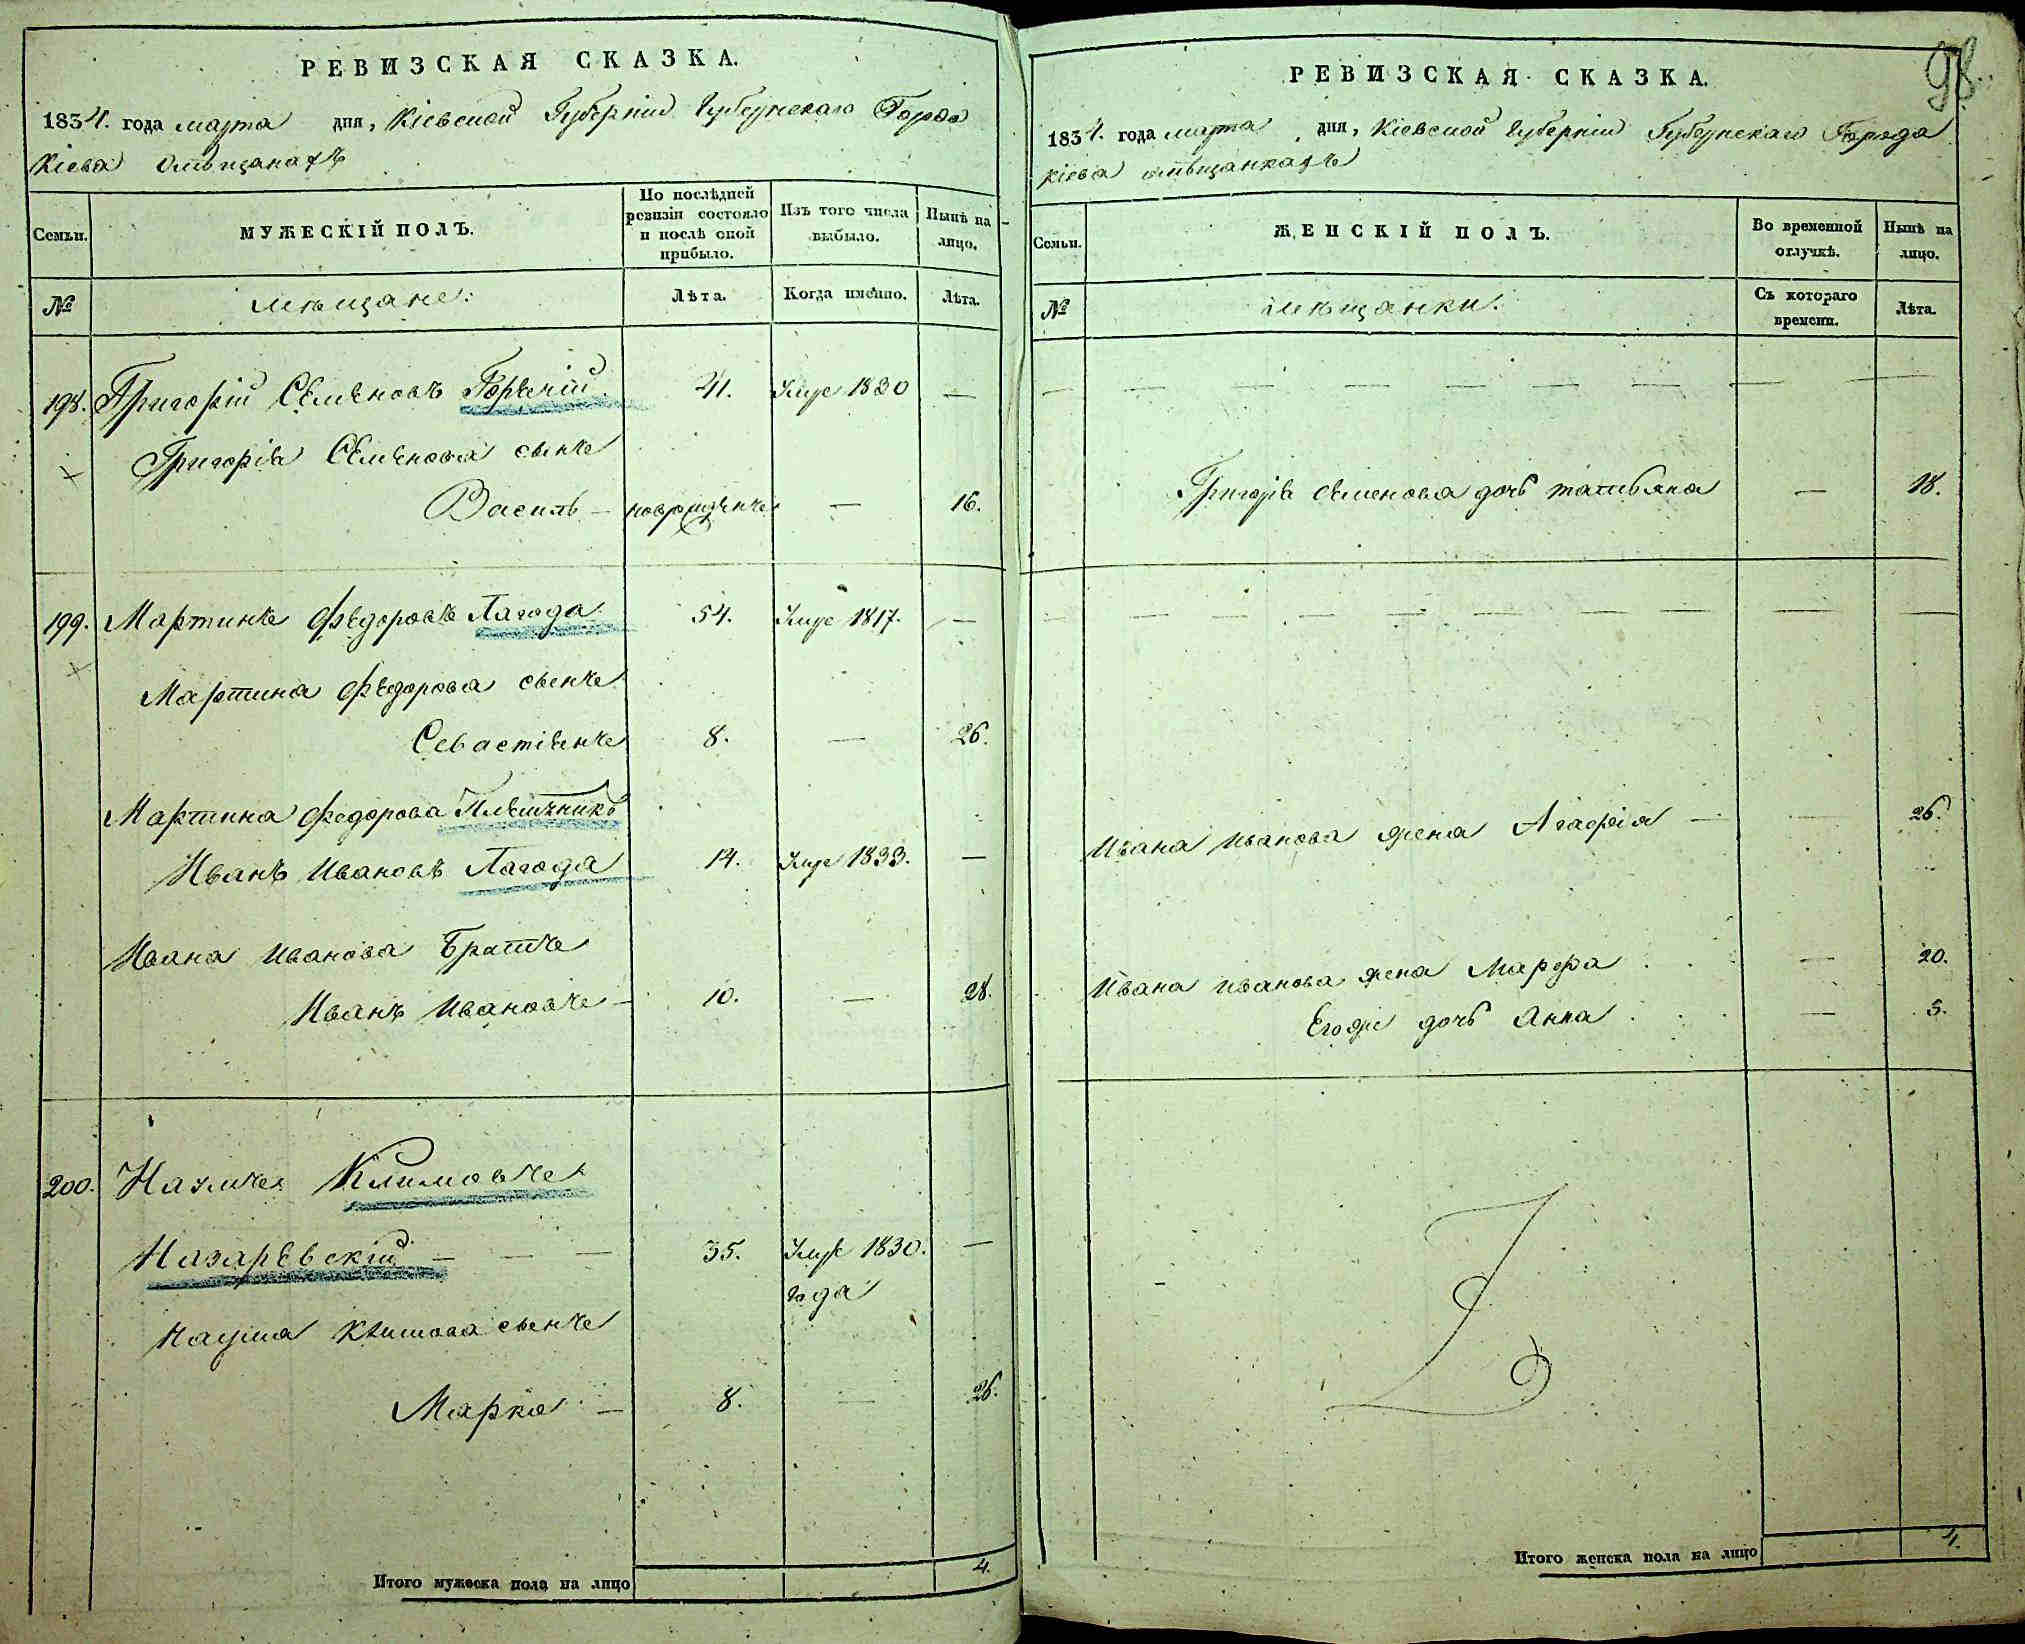 РЕВИЗСКАЯ СКАЗКА.
1834. года марта дня, Кіевской Губерніи Губернскаго Города
Кіева Омѣщанахъ
Семьи.
МУЖЕСКІЙ ПОЛЪ.
По послѣдней
ревизіи состояло
и послѣ оной
прибыло.
Изъ того числа
выбыло.
Нынѣ на
лицо.
№
мѣщане:
Лѣта.
Когда имѧнно.
Лѣта.
198. Григорій Семеновъ 41. Умре 1830 —
Григорія Семенова сынъ
Василь — новорожденъ — 16.
199. Мартинъ Федоровъ Лагода 54. Умре 1817. —
Мартина Федорова сынъ
Севастіянъ 8. — 26.
Мартина Федорова Племѣнникъ
Иванъ Ивановъ Лагода 14. Умре 1833. —
Ивана Иванова Братъ
Иванъ Ивановъ — 10. — 28.
200. Наумъ Климовъ
Назаревскій — — — 35. Умре 1830. —
года
Наума Климова сынъ
Марко — 8. — 26.
Итого мужеска пола на лицо 4.
98.
РЕВИЗСКАЯ СКАЗКА.
1834. года марта дня, Кіевской Губерніи Губернскаго Города
Кіева омѣщанкахъ
Семьи.
ЖЕНСКІЙ ПОЛЪ.
Во временной
отлучкѣ.
Нынѣ на
лицо.
№
мѣщанки:
Съ котораго
времени.
Лѣта.
Григорія Семенова дочь татьяна — 18.
Ивана Иванова жена Агафія — — 26.
Ивана Иванова жена Марфа — 20.
Егоже дочь Анна — 5.
Итого женска пола на лицо 4.